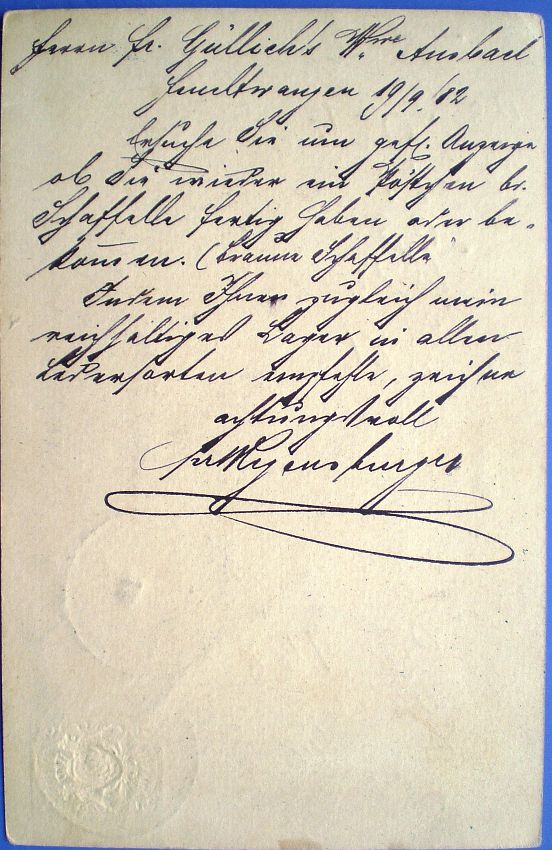 Herrn Fr. Güllich's Wwe Ansbach
Feuchtwangen 19/9. 82
Ersuche Sie um gefl. Anzeige
ob Sie wieder ein Pöstchen br.
Schaffelle fertig haben oder be-
kommen. (braune Schaffelle
Indem Ihnen zugleich mein
reichhaltiges Lager in allen
Ledersorten empfehle, zeichne
achtungsvoll
Regensburger